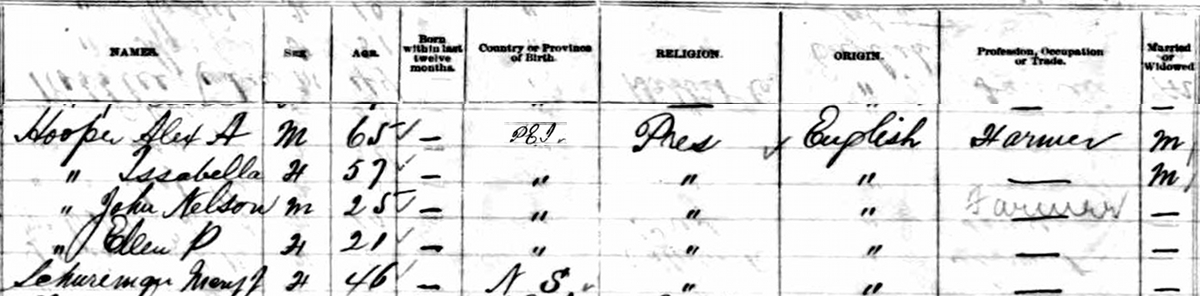 NAMES. SEX AGE. Born within last twelve months. Country or Province of Birth. RELIGION. ORIGIN. Profession, Occupation or Trade. Married or Widowed
Hooper Alex A M 65 — P.E.I. Pres English Farmer M
" Issabella F 57 — " " " — M
" John Nelson M 25 — " " " Farmer —
" Ellen P F 21 — " " " — —
Schureman Mary J F 46 — N S. " " — —